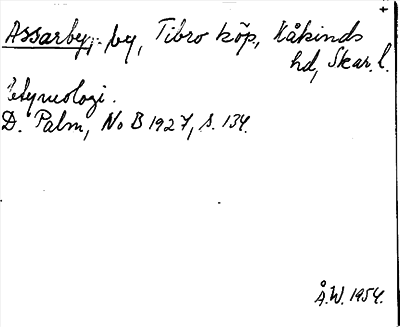 +
Assarby, by, Tibro köp, Kåkinds
hd, Skar. l.
Etymologi.
D. Palm, No B 1927, s. 134.
Å.W. 1954.